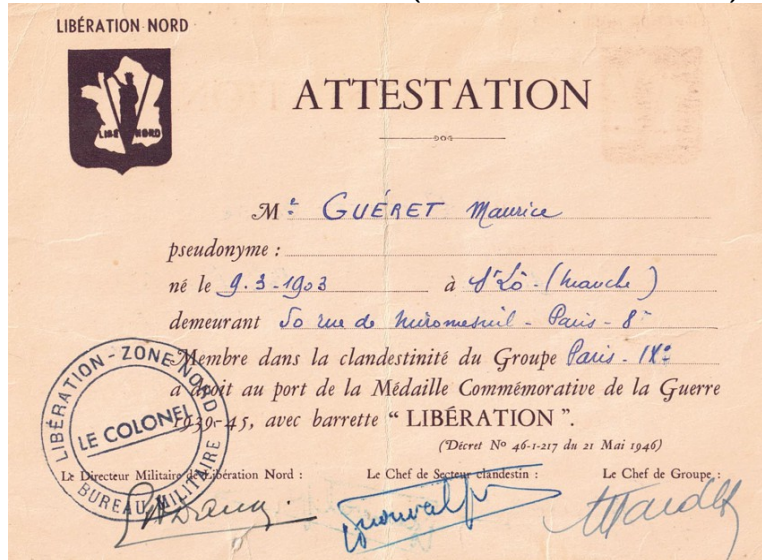 LIBÉRATION NORD
LIBÉ NORD
ATTESTATION
Mr GUÉRET Maurice
pseudonyme :
né le 9.3-1903 à St Lô - (Manche)
demeurant 50 rue de Miromesnil - Paris - 8e
Membre dans la clandestinité du Groupe Paris - IXe
a droit au port de la Médaille Commémorative de la Guerre
1939-45, avec barrette “ LIBÉRATION ”.
(Décret No 46-1-217 du 21 Mai 1946)
LIBÉRATION - ZONE NORD
LE COLONEL
BUREAU MILITAIRE
Le Directeur Militaire de Libération Nord : Le Chef de Secteur clandestin : Le Chef de Groupe :